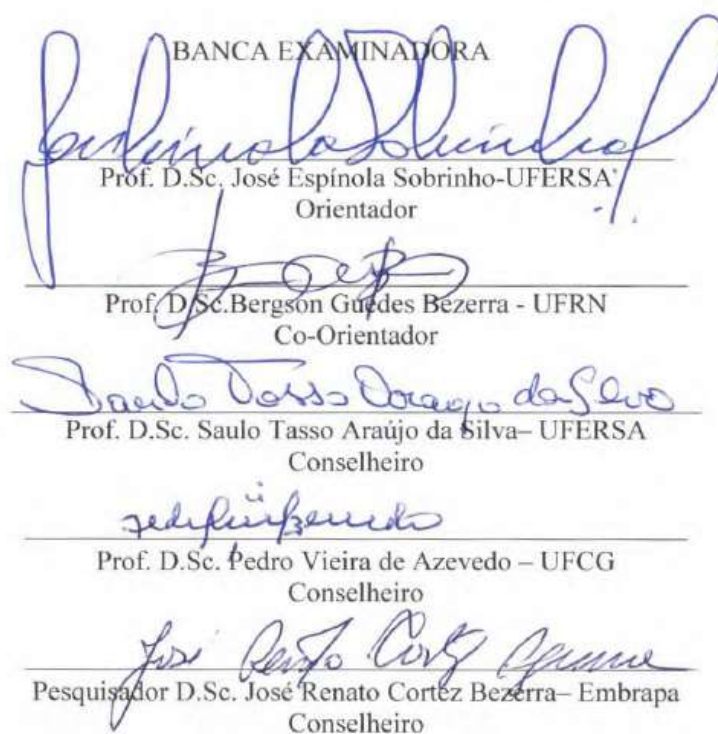 BANCA EXAMINADORA
Prof. D.Sc. José Espínola Sobrinho-UFERSA
Orientador
Prof. D.Sc.Bergson Guedes Bezerra - UFRN
Co-Orientador
Saulo Tasso Araújo da Silva
Prof. D.Sc. Saulo Tasso Araújo da Silva– UFERSA
Conselheiro
Prof. D.Sc. Pedro Vieira de Azevedo – UFCG
Conselheiro
José Renato Cortez
Pesquisador D.Sc. José Renato Cortez Bezerra– Embrapa
Conselheiro